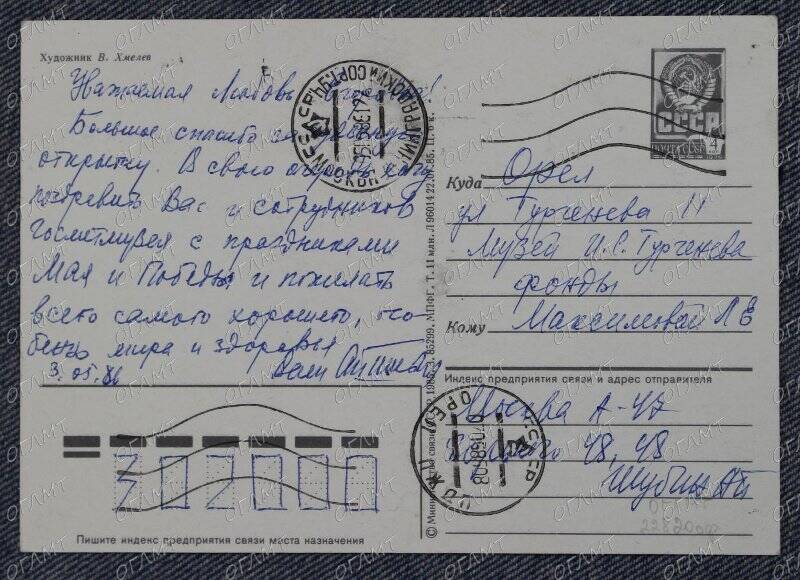 Художник В. Хмелев
Уважаемая Любовь
Большое спасибо за
открытку. В свою очередь хочу
поздравить Вас и сотрудников
Госмузея с праздниками
Мая и Победы и пожелать
всего самого хорошего, осо-
бенно мира и здоровья
3.05.86
СССР
ПОЧТА СССР
4
Куда Орел
ул Тургенева 11
Музей И.С. Тургенева
фонды
Кому Максимовой Л Е
Индекс предприятия связи и адрес отправителя
Москва А-47
48, 48
Шубин АП
Пишите индекс предприятия связи места назначения
© Министерство связи
МОСКВА
ОГЛМТ